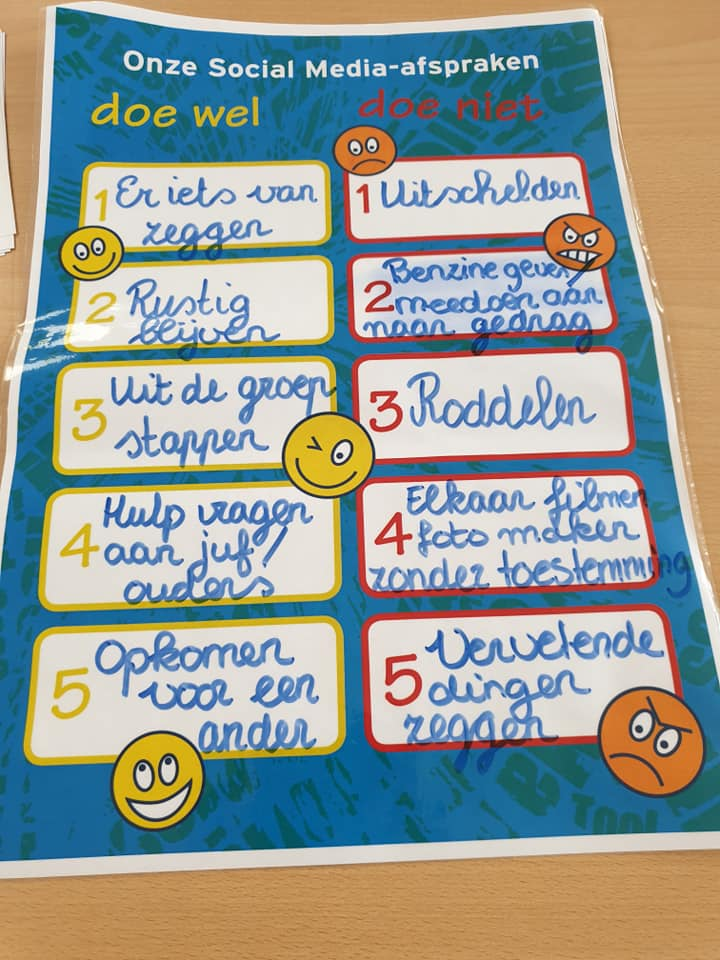 Onze Social Media-afspraken
doe wel
1 Er iets van
zeggen
2 Rustig
blijven
3 Uit de groep
stappen
4 Hulp vragen
aan juf/
ouders
5 Opkomen
voor een
ander
doe niet
1 Uitschelden
2 Benzine geven/
meedoen aan
naar gedrag
3 Roddelen
4 Elkaar filmen
foto maken
zonder toestemming
5 Vervelende
dingen
zeggen